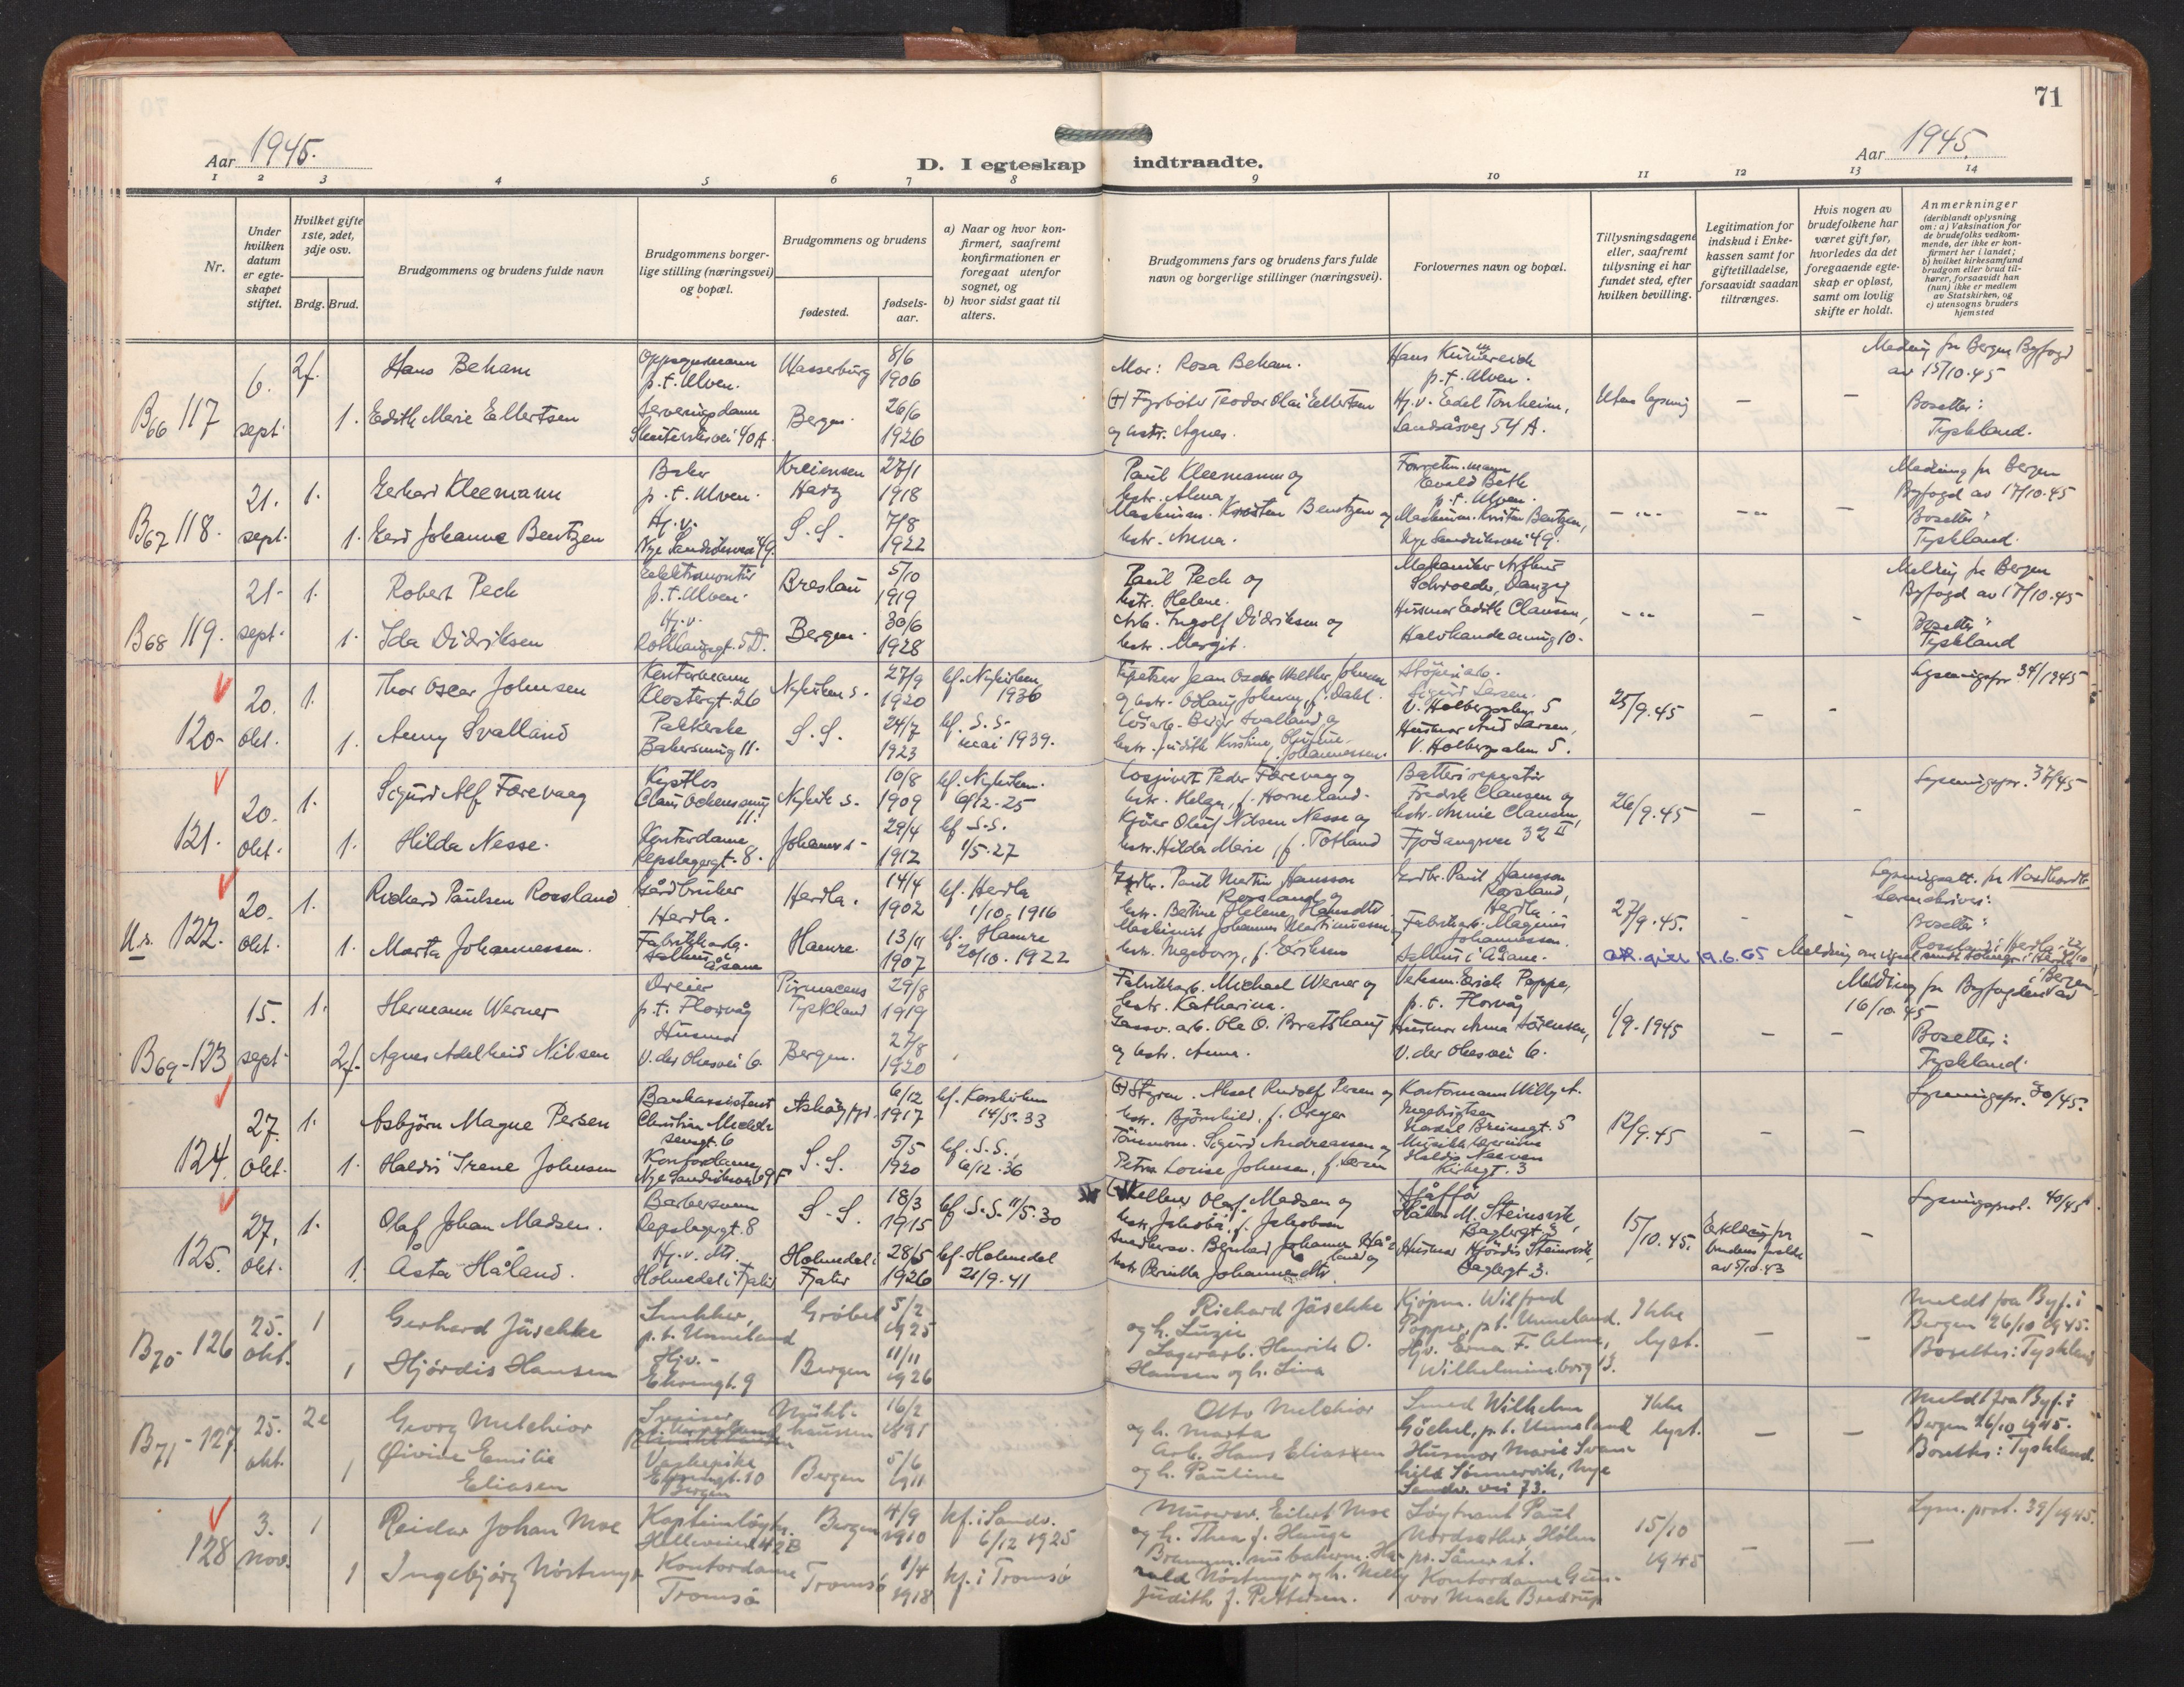 71
Aar 1945.
D. I egteskap indtraadte.
Aar 1945.
1 2 3 4 5 6 7 8 9 10 11 12 13 14
Nr.
Under hvilken datum er egteskapet stiftet.
Hvilket gifte 1ste, 2det, 3dje osv.
Brdg. Brud.
Brudgommens og brudens fulde navn
Brudgommens borgerlige stilling (næringsvei) og bopæl.
Brudgommens og brudens
fødested.
fødselsaar.
a) Naar og hvor konfirmert, saafremt konfirmationen er foregaat utenfor sognet, og
b) hvor sidst gaat til alters.
Brudgommens fars og brudens fars fulde navn og borgerlige stillinger (næringsvei).
Forlovernes navn og bopæl.
Tillysningsdagene eller, saafremt tillysning ei har fundet sted, efter hvilken bevilling.
Legitimation for indskud i Enkekassen samt for giftetilladelse, forsaavidt saadan tiltrænges.
Hvis nogen av brudefolkene har været gift før, hvorledes da det foregaaende egteskap er opløst, samt om lovlig skifte er holdt.
Anmerkninger
(deriblandt oplysning om: a) Vaksination for de brudefolks vedkommende, der ikke er konfirmert her i landet;
b) hvilket kirkesamfund brudgom eller brud tilhører, forsaavidt han (hun) ikke er medlem av Statskirken, og
c) utensogns bruders hjemsted
B66 117
6. sept.
2f.
Hans Beham
p.t. Ulven.
Wasserburg
8/6 1906
Mor: Rosa Beham.
p.t. Ulven.
Melding fra Bergen Byfogd
av 15/10.45
1.
Edith Marie Ellertsen
Serveringsdame
40A.
Bergen.
26/6 1926
(+) Fyrbøter Teodor Olai Ellertsen
og hstr. Agnes.
Hj.v. Edel Tonheim,
Landåsveg 54 A.
Uten lysning
—
—
Bosetter:
Tyskland.
B67 118.
21. sept.
1.
Gerhard Kleemann
Baker
p.t. Ulven.
Kreiensen
Harz
27/1 1918
Paul Kleemann og
hstr. Alma
Ewald Beth
p.t. Ulven.
Melding fra Bergen
Byfogd av 17/10.45
1.
Gerd Johanne Bentzen
Hj.v.
Nye Sandviksvei 49.
S.S.
7/8 1922
Maskinm. Kristen Bentzen og
hstr. Anna.
Maskinm. Kristen Bentzen,
Nye Sandviksvei 49.
Bosetter:
Tyskland.
B68 119.
21. sept.
1.
Robert Pech
Elektromontør
p.t. Ulven.
Breslau
5/10 1919
Paul Pech og
hstr. Helene.
Mekaniker Arthur
Schroeder, Danzig
Melding fra Bergen
Byfogd av 17/10.45
1.
Ida Didriksen
Hj.v.
Rothaugsgt. 5 D.
Bergen.
30/6 1928
Arb. Ingolf Didriksen og
hstr. Margit.
Husmor Edith Clausen,
10.
Bosetter:
Tyskland
120.
20. okt.
1.
Thor Oscar Johnsen
Kontormann
Klostergt. 26
Nykirken s.
27/9 1920
kf. Nykirken
1936
Sigurd Larsen.
V. Holbergsalm 5
25/9.45
Lysningspr. 34/1945
1.
Anny Svalland
Bakersmug 11.
S.S.
24/7 1923
kf. S.S.
mai 1939.
Johannessen.
Husmor Aud Larsen,
V. Holbergsalm 5.
121.
20. okt.
1.
Sigurd Alf Førevaag
Nykirk s.
10/8 1909
kf. Nykirken.
6/12-25
Peder Førevaag og
hstr. Helga, f. Horneland.
Batterireparatør
Fredrik Clausen og
hstr. Annie Clausen,
26/9.45
Lysningspr. 37/45
1.
Hilda Nesse.
Kontordame
Repslagergt. 8.
Johannes
29/4 1912
kf. S.S.
1/5.27
Kjører Oluf Nilsen Nesse og
hstr. Hilda Marie, f. Totland
Fjøsangerveien 32 II
U.s. 122.
20. okt.
1.
Richard Paulsen Rossland
Gårdbruker
Herdla.
Herdla.
14/4 1902
kf. Herdla
1/10.1916
Grdbr. Paul Martin Hansson
Rossland og
hstr. Bertine Helene Hansdtr
Grdbr. Paul Hansson
Rossland,
Herdla.
27/9.45.
Lysningsatt. fra Nordhordl.
Sorenskriver.
1.
Marta Johannessen.
Fabrikkarb.
Salhus i
Åsane
Hamre.
13/11 1907
kf. Hamre
20/10.1922
Maskinist Johannes Martinussen
hstr. Ingeborg, f. Eriksen
Fabrikkarb. Magnus
Johannessen.
Salhus i Åsane.
19.6.65
Bosetter:
B69-123
15. sept.
1.
Hermann Werner
Dreier
p.t. Florvåg
Pirmacens
Tyskland
29/8 1919
Fabrikkarb. Michael Werner og
hstr. Katharina.
Verksm. Erich Poppe,
p.t. Florvåg
1/9.1945
Melding fra Byfogden i Bergen av
16/10.45
2f.
Agnes Adelheid Nilsen
Husmor
V. der Ohesvei 6.
Bergen.
27/8 1920
Ole O. Bratshaug
og hstr. Anna.
Husmor Anna Sørensen,
V. der Ohesvei 6.
Bosetter:
Tyskland.
124.
27. okt.
1.
Asbjørn Magne Persen
Bankassistent
Christian Michelsensgt. 6
6/12 1917
kf. Korskirken
14/5.33
(+) Styrm. Aksel Rudolf Persen og
hstr. Bjørnhild, f. Dreyer
Kontormann Willy A.
Ingebrigtsen
12/9.45
Lysningspr. 30/45.
1.
Haldis Irene Johnsen
Kontordame
Nye Sandviksvei 69 F
S.S.
5/5 1920
kf. S.S.
6/12.36
Tømmerm. Sigurd Andreassen og
Petra Louise Johnsen, f.
Haldis Naeven
Kirkegt. 3
125.
27. okt.
1.
Olaf Johan Madsen.
Barbersvenn
Repslagergt. 8
S.S.
18/3 1915
kf. S.S. 11/5.30
(+) Kellner Olaf Madsen og
hstr. Jakoba, f. Jakobsen
Sjåfør
Håkon M. Steinsvik,
Baglergt. 3
15/10.45.
Erklæring fra
brudens foreldre
av 5/10.43
Lysningsprot. 40/45
1.
Åsta Håland.
Hj.v. dtr.
Holmedal i Fjaler
Holmedal i
Fjaler
28/5 1926
kf. Holmedal
21/9.41
Snedkersv. Bernhard Johannes Håland og
hstr. Pernilla Johannesdtr.
Husmor Hjørdis Steinsvik,
Baglergt. 3.
B70-126
25. okt.
1
Gerhard Jäschke
Snekker,
p.t. Unneland
Gröbel
5/2 1925
Richard Jäschke
og h. Luzie
Kjøpm. Wilfred
Popper, p.t. Unneland.
Ikke
lyst.
Meldt fra Byf. i
Bergen 26/10 1945.
1
Hjørdis Hansen
Hjv. -
Ekrengt. 9
Bergen
11/11 1926
Lagerarb. Henrik O.
Hansen og h. Lina
Hjv. Erna F. Alme,
Wilhelmineborg 13.
Bosetter: Tyskland
B71-127
25. okt.
2e
Georg Melchior
Mühlhausen
16/2 1891
Otto Melchior
og h. Marta
Smed Wilhelm
Göckel, p.t. Unneland
Ikke
lyst.
Meldt fra Byf. i
Bergen 26/10 1945.
1
Øivine Emilie
Eliasen
Vaskepike
Ekrengt. 10
Bergen
Bergen
5/6 1911
Arb. Hans Eliassen
og h. Pauline
Husmor Marie Svanhild Sønnervik, Nye
Sandv. vei 73.
Bosetter: Tyskland.
128
3. nov.
1
Reidar Johan Moe
Kapteinløytn.
Helleveien 42B
Bergen
4/9 1910
kf. i Sandv.
6/12 1925
Murersv. Eilert Moe
og h. Thea f. Hauge
Løytnant Paul
Nordsæther, Hølen
pr. Såner st.
15/10
1945
Lysn. prot. 39/1945.
1
Ingebjørg Nøstmyr
Kontordame
Tromsø
Tromsø
1/4 1918
kf. i Tromsø
Harald Nøstmyr og h. Nelly
Judith f. Pettersen.
Kontordame Gunvor Mack Bredrup